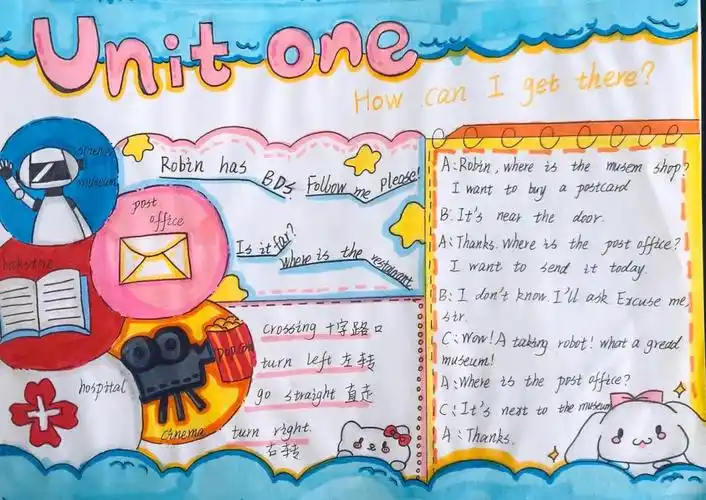 Unit one
How can I get there?
science
museum
post
office
bokstore
hospital
cinema
popcorn
Robin has BDS. Follow me please!
Is it far?
Where is the restaurant.
crossing 十字路口
turn left 左转
go straight 直走
turn right.
右转
A: Robin, where is the musem shop?
I want to buy a postcard
B: It's near the door.
A: Thanks. Where is the post office?
I want to send it today.
B: I don't know. I'll ask Excuse me,
sir.
C: Wow! A taking robot! what a gread
museum!
A: Where is the post office?
C: It's next to the museum
A: Thanks.